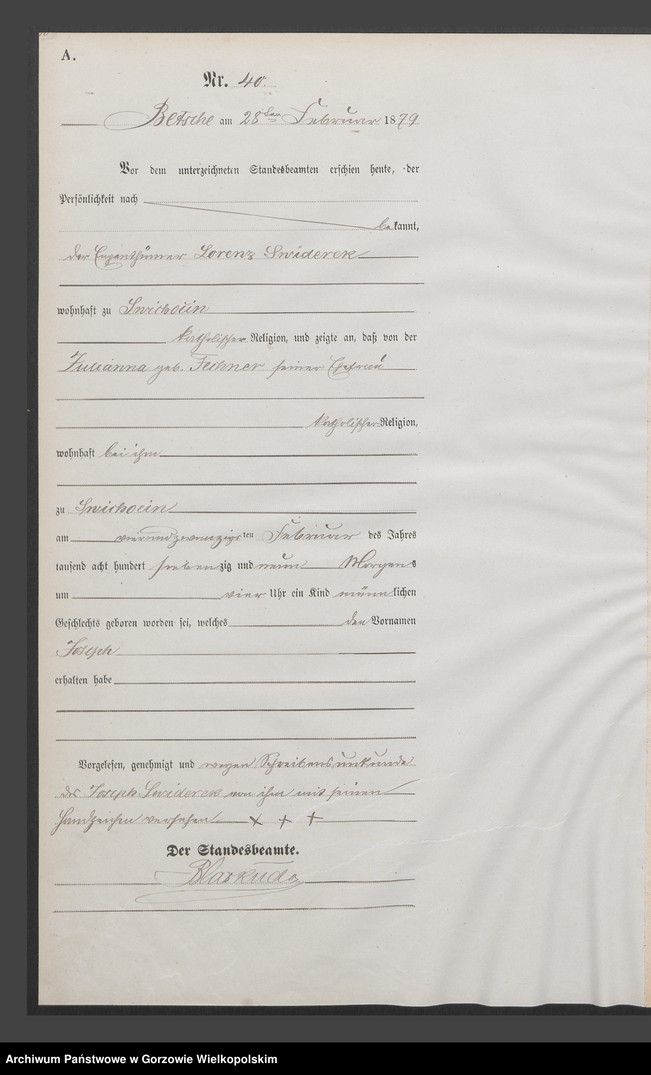 A.
Nr. 40.
Betsche am 28ten Februar 1879
Vor dem unterzeichneten Standesbeamten erschien heute, der
Persönlichkeit nach
bekannt,
der Eigenthümer Lorenz Swiderek
wohnhaft zu Swichocin
katholischer Religion, und zeigte an, daß von der
Julianna geb. Fechner seiner Ehefrau
katholischer Religion,
wohnhaft bei ihm
zu Swichocin
am vierundzwanzigsten Februar des Jahres
tausend acht hundert siebenzig und neun Morgens
um vier Uhr ein Kind männlichen
Geschlechts geboren worden sei, welches den Vornamen
Joseph
erhalten habe
Vorgelesen, genehmigt und wegen Schreibensunkunde
des Joseph Swiderek von ihm mit seinen
Handzeichen versehen + + +
Der Standesbeamte.
Archiwum Państwowe w Gorzowie Wielkopolskim